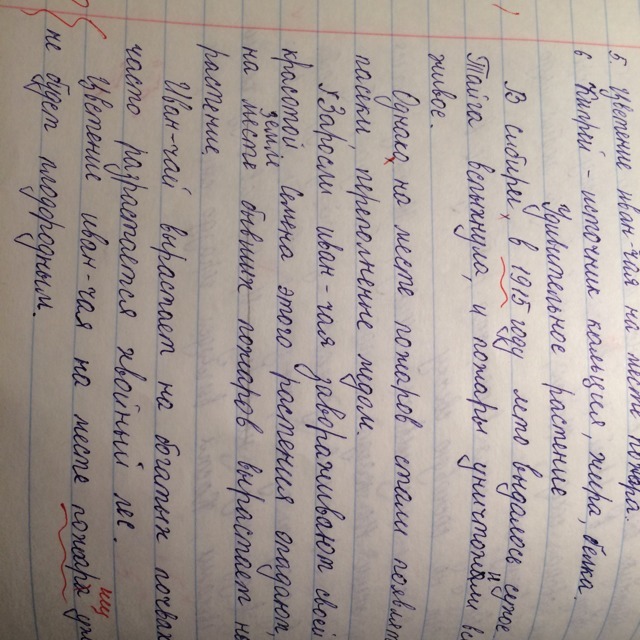 5. Цветение иван-чая на месте пожара.
6. Кипрей - источник кальция, жира, белка.
Удивительное растение
В сибири, в 1915 году лето выдалось сухое.
Тайга вспыхнула, и пожары уничтожили
живое.
Однако на месте пожаров стали
пасеки, переполненные мёдом.
Заросли иван-чая завораживают своей
красотой. Семена этого растения опадают,
на месте бывших пожаров вырастает
растение.
Иван-чай вырастает на богатых почвах
часто разрастается хвойный лес.
Цветение иван-чая на месте пожара
не будет плодородным.